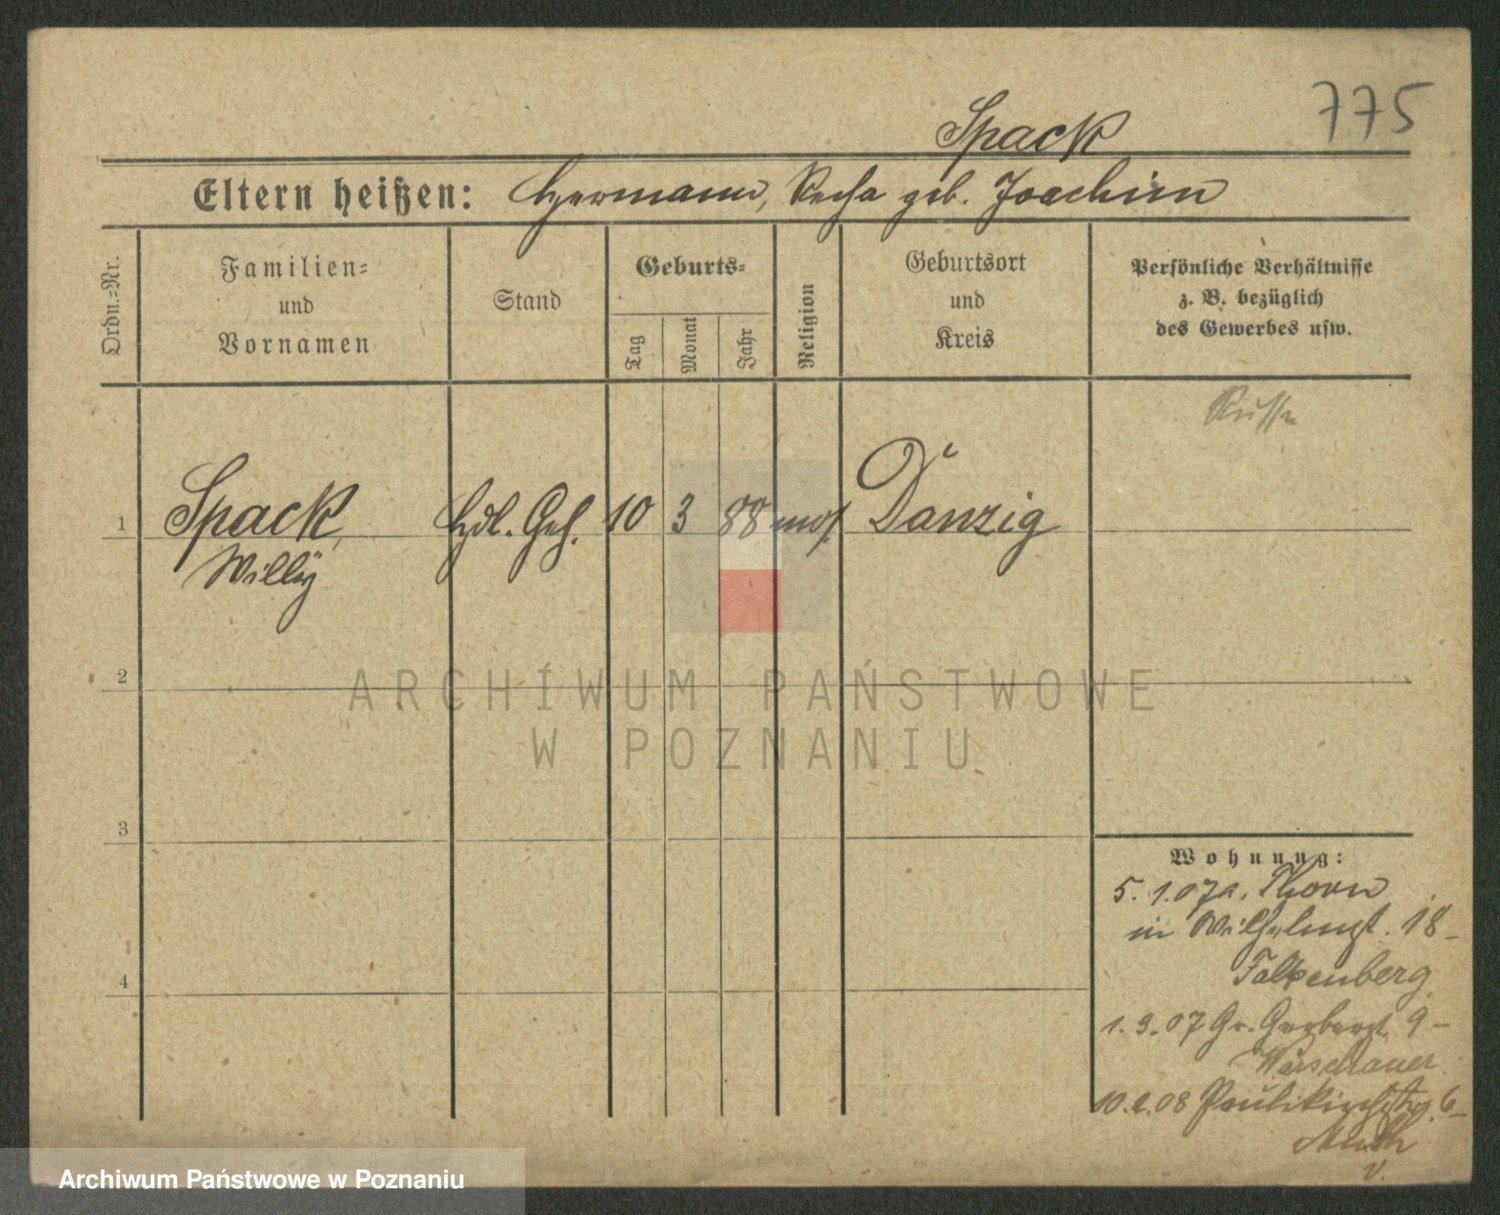 775
Spack
Eltern heißen: Hermann, Recha geb. Joachim
Ordn.=Nr.
Familien=
und
Vornamen
Stand
Geburts=
Tag
Monat
Jahr
Religion
Geburtsort
und
Kreis
Persönliche Verhältnisse
z. B. bezüglich
des Gewerbes usw.
Russe
1
Spack,
Willy
Hdl. Geh.
10
3
88
mos.
Danzig
2
3
4
ARCHIWUM PAŃSTWOWE
W POZNANIU
Wohnung:
5. 1. 07 a. Thorn
in Wilhelmst. 18 -
Falkenberg
1. 9. 07 Gr. Gerberst. 9 -
Warschauer
10. 2. 08 Paulikirchstr. 6 -
Archiwum Państwowe w Poznaniu